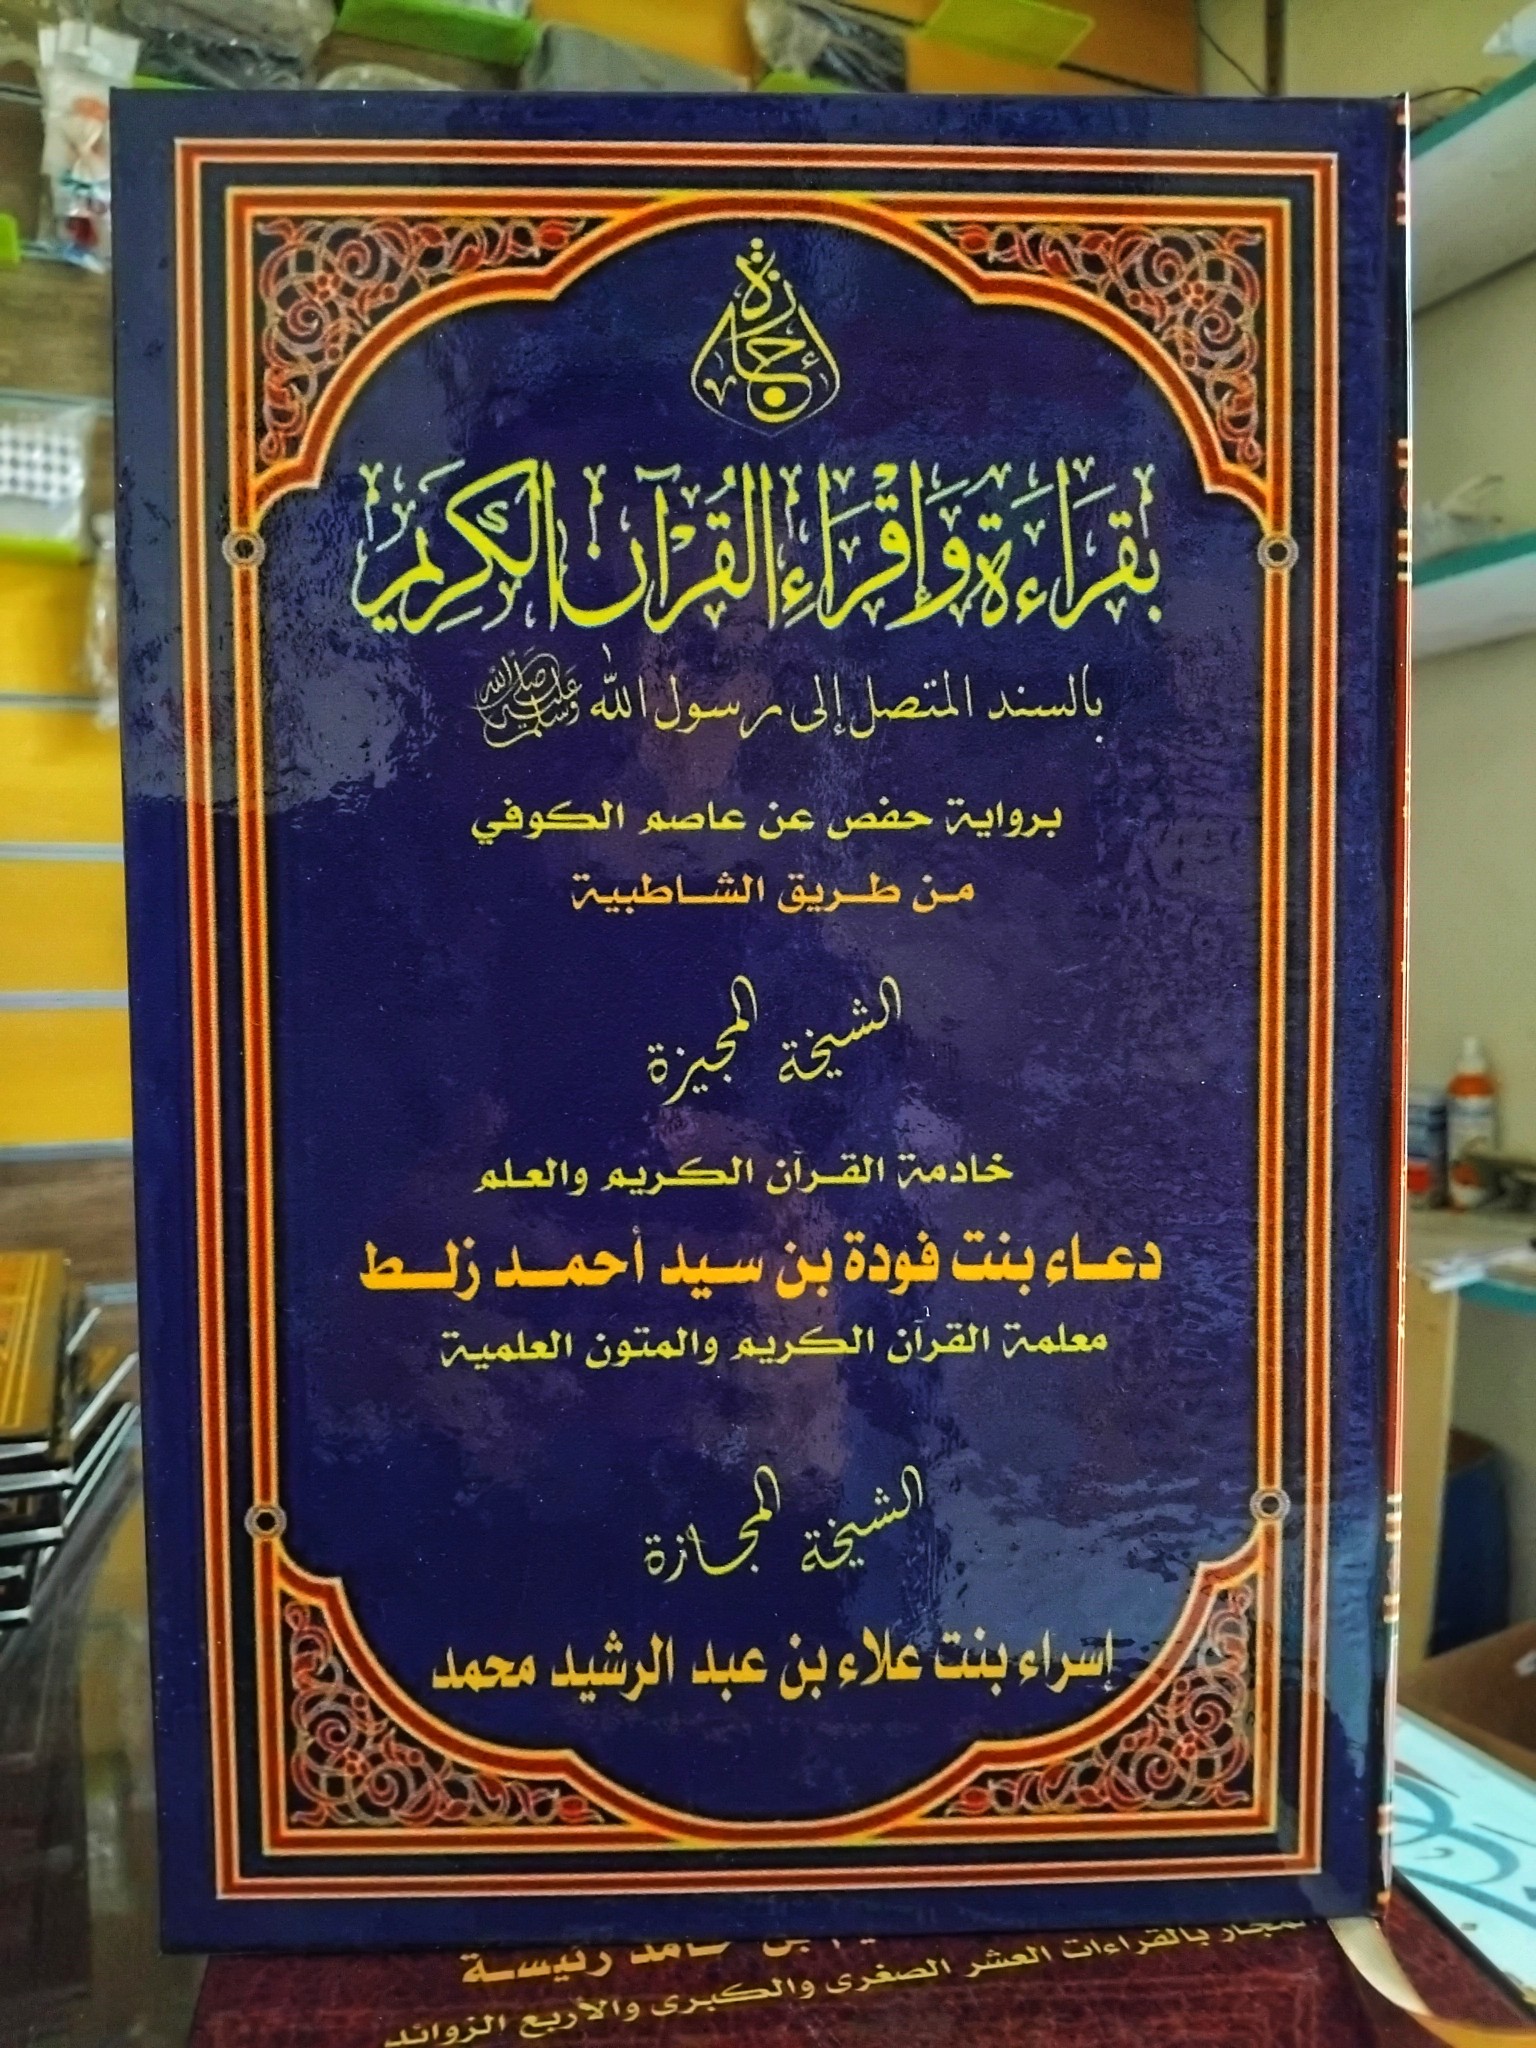 إجازة
بقراءة وإقراء القرآن الكريم
بالسند المتصل إلى رسول الله صلى الله عليه وسلم
برواية حفص عن عاصم الكوفي
من طريق الشاطبية
الشيخة المجيزة
خادمة القرآن الكريم والعلم
دعاء بنت فودة بن سيد أحمد زلط
معلمة القرآن الكريم والمتون العلمية
الشيخة المجازة
إسراء بنت علاء بن عبد الرشيد محمد
بن حامد رئيسة
المجاز بالقراءات العشر الصغرى والكبرى والأربع الزوائد